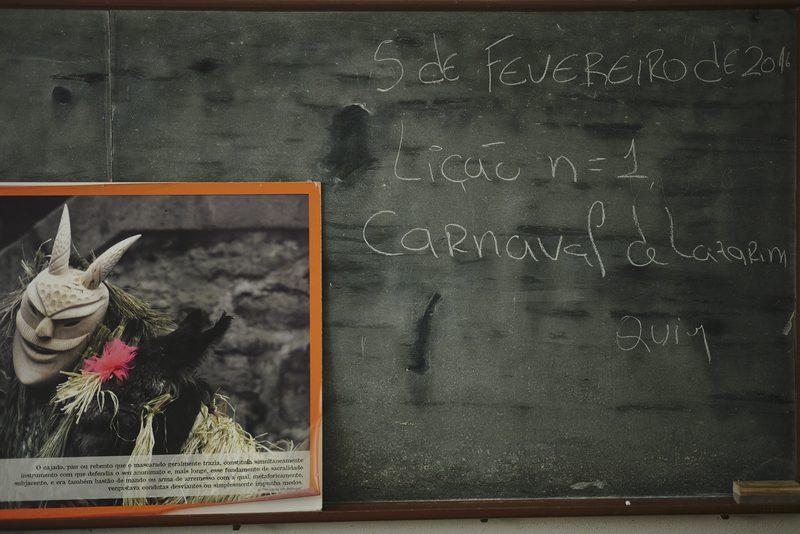 5 de FEVEREIRO de 2016
Lição n=1
Carnaval de Lazarim
Quim
O cajado, pau ou rebento que o mascarado geralmente trazia, constituía simultaneamente
instrumento com que defendia o seu anonimato e, mais longe, esse fundamento de sacralidade
subjacente, e era também bastão de mando ou arma de arremesso com a qual, metaforicamente,
vergastava condutas desviantes ou simplesmente impunha medos.